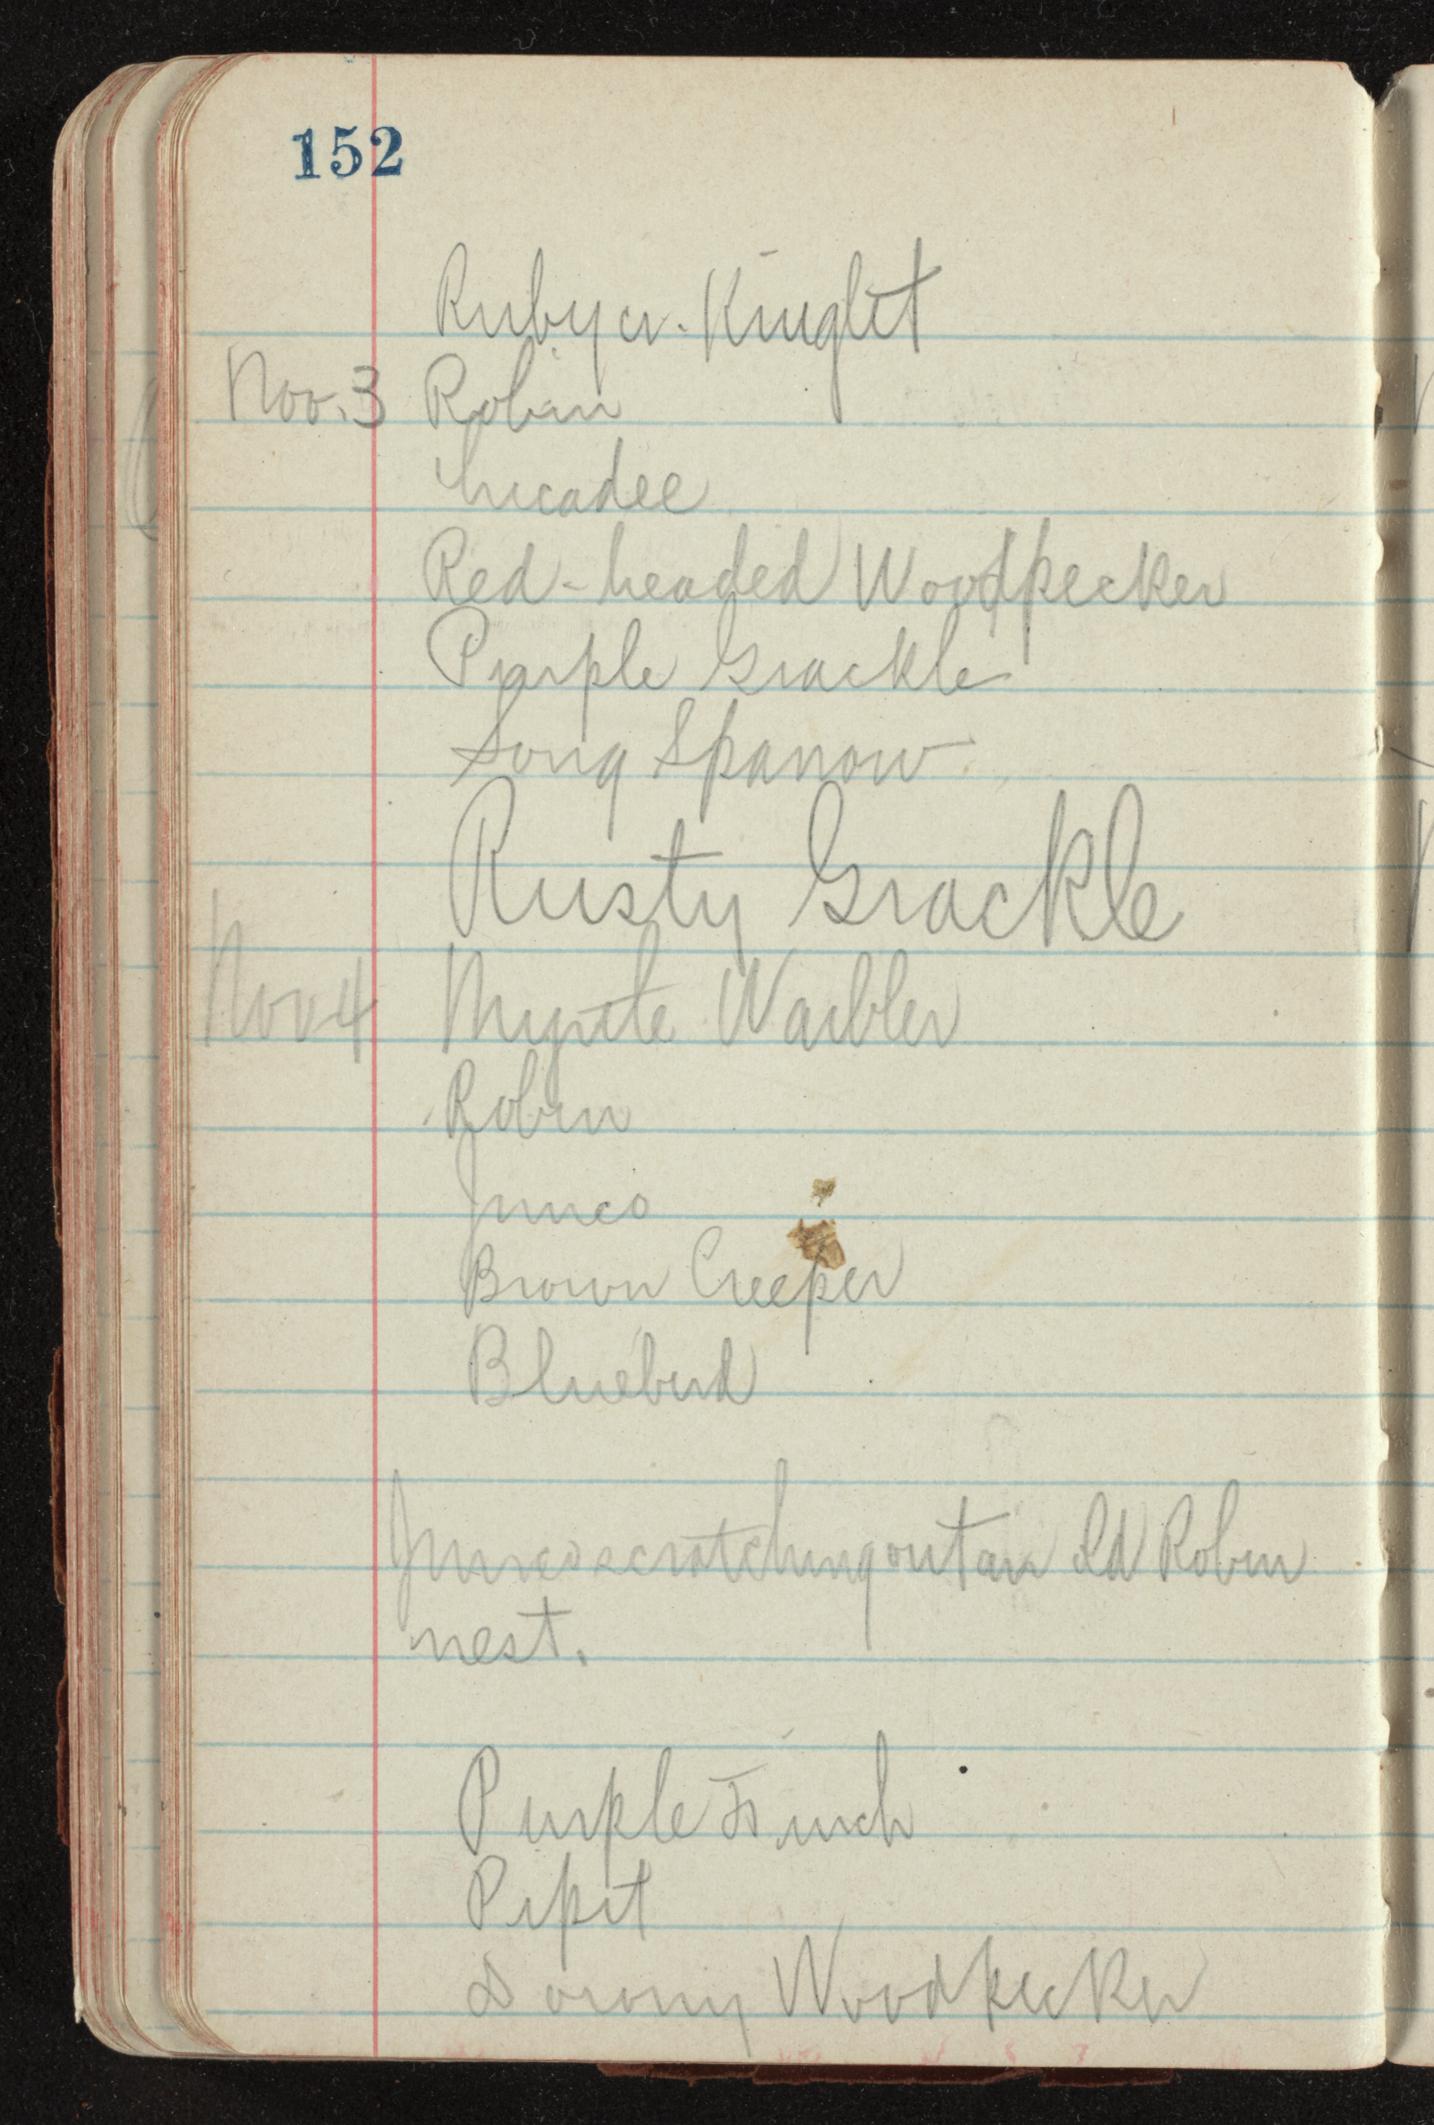 152
Ruby cr. Kinglet
Nov. 3 Robin
Chicadee
Red-headed Woodpecker
Purple Grackle
Song Sparrow
Rusty Grackle
Nov 4 Myrtle Warbler
Robin
Junco
Brown Creeper
Bluebird
Juncos scratching out an old Robin
nest.
Purple Finch
Pipit
Downy Woodpecker